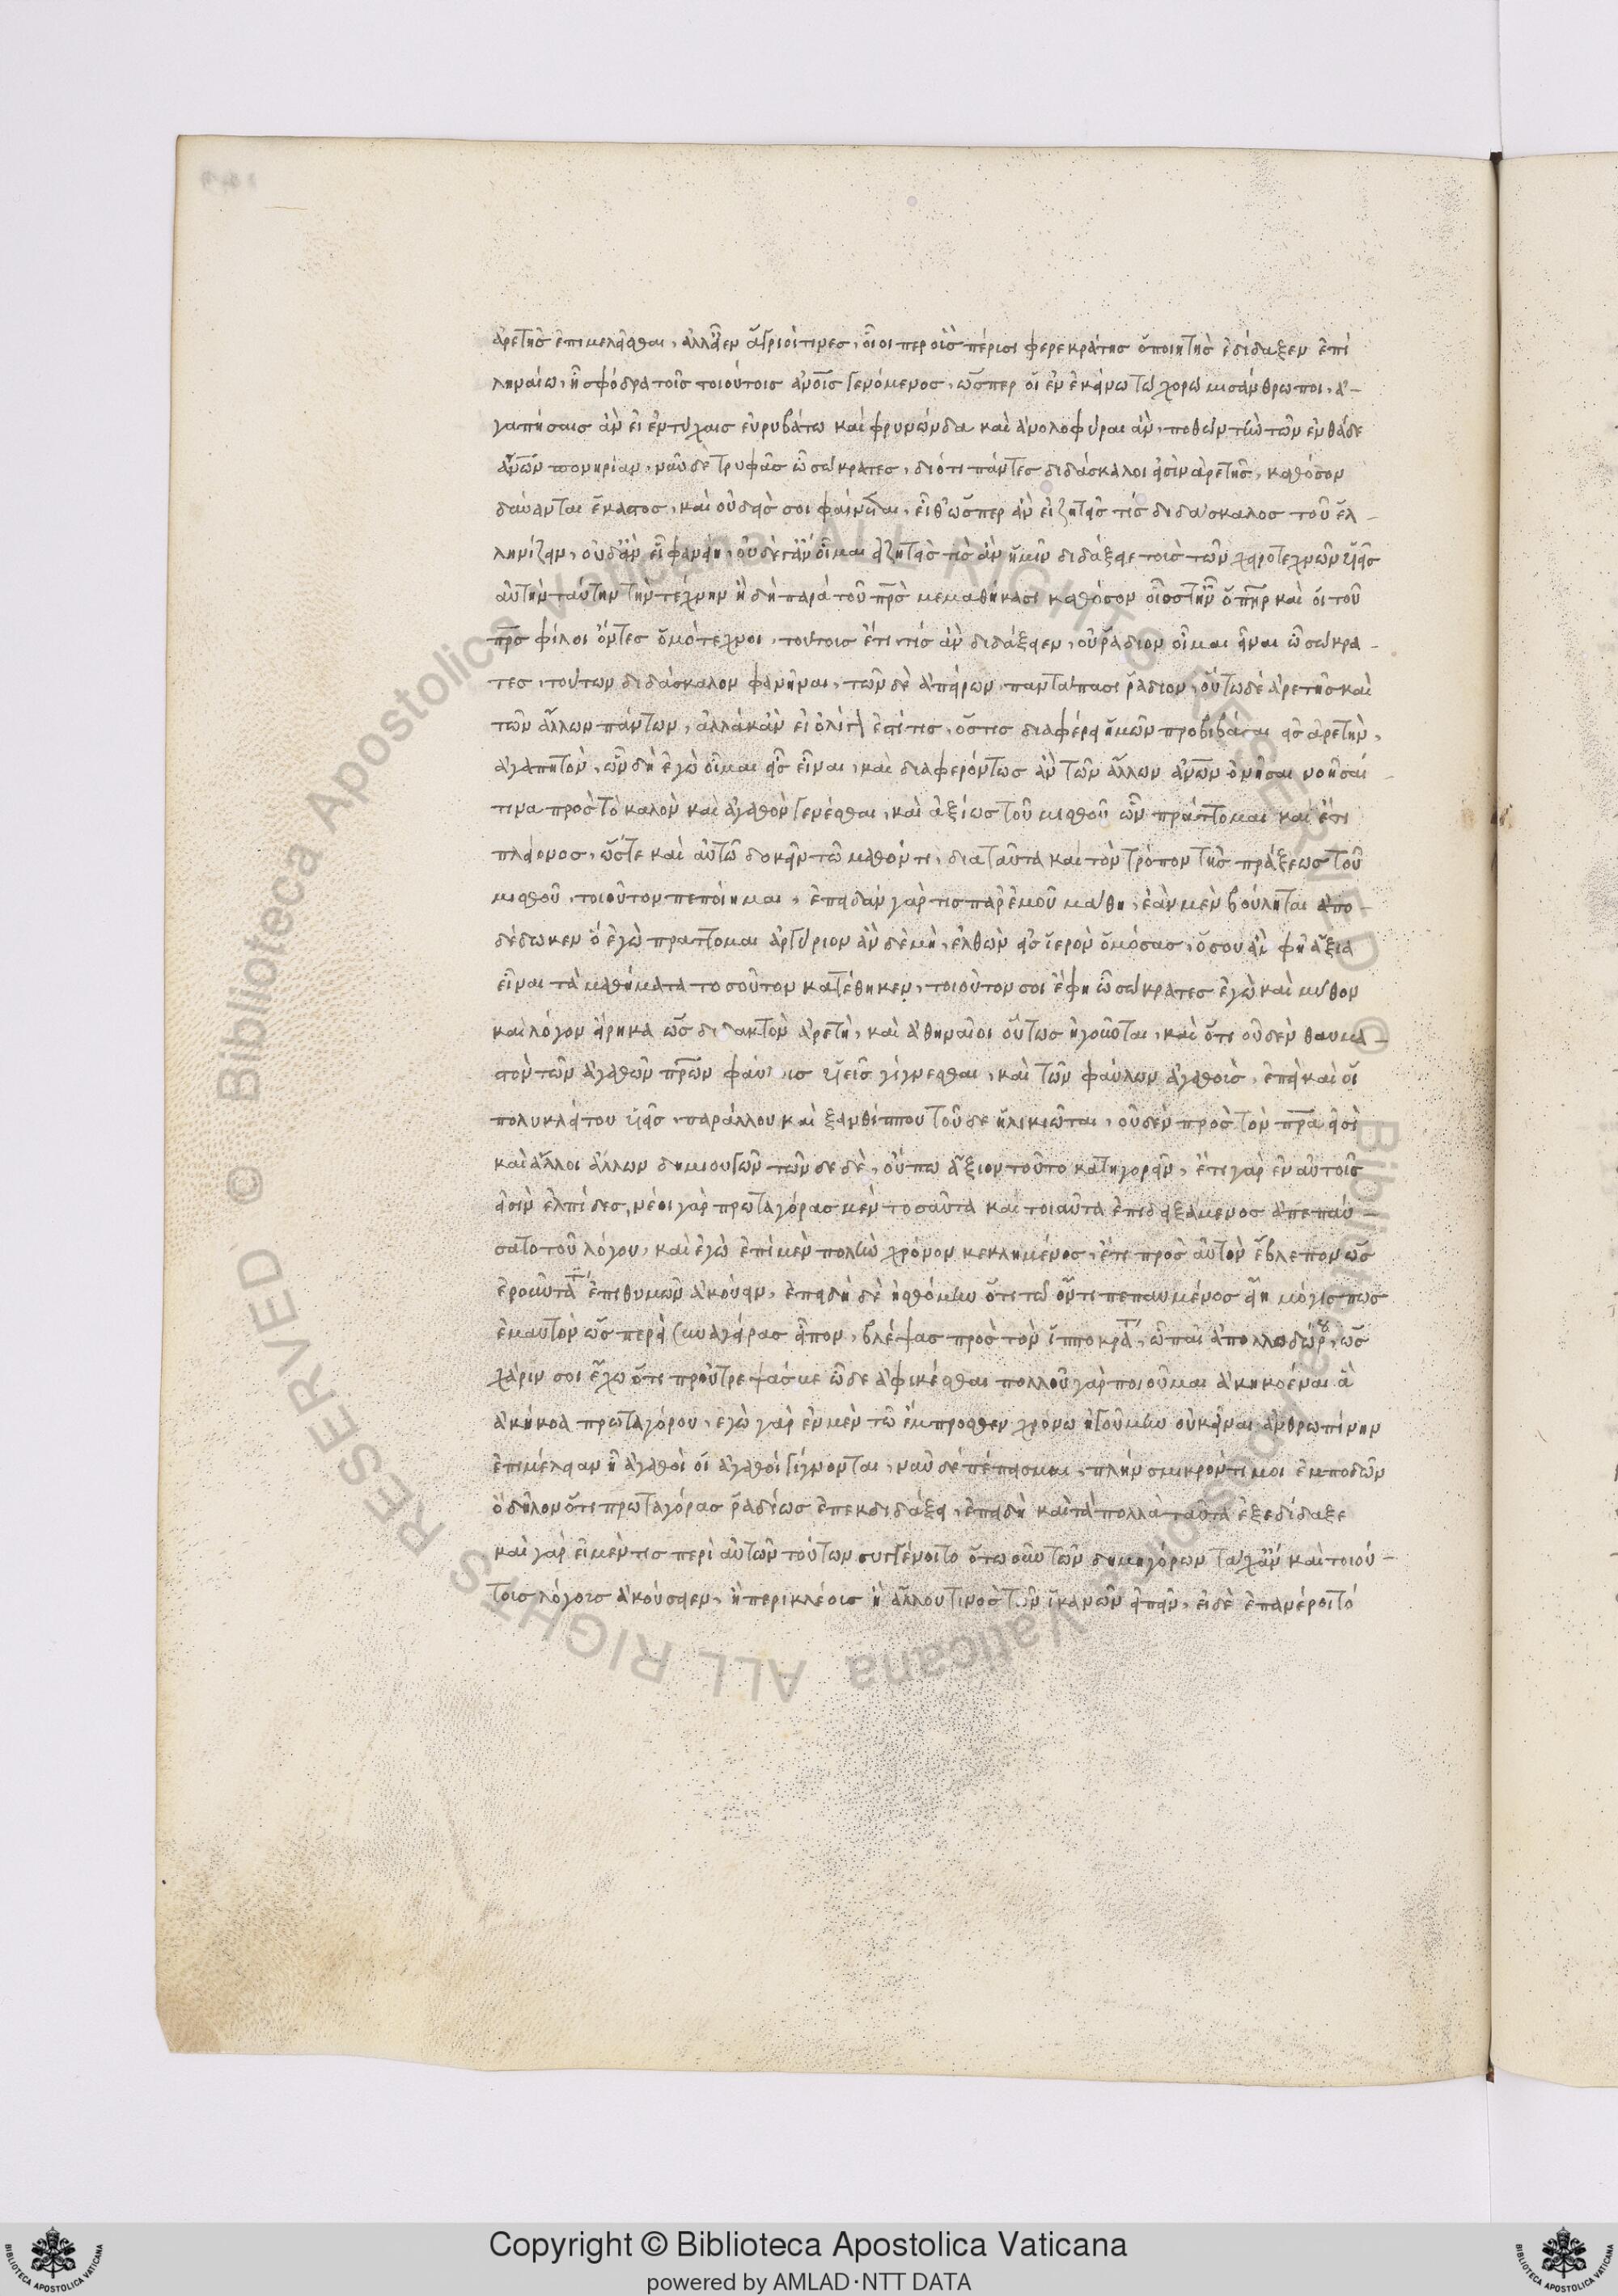 ἀρετῆς ἐπιμελεῖσθαι, ἀλλ' εἶεν ἄγριοί τινες, οἷοι περ οὓς πέρισι φερεκράτης ὁ ποιητὴς ἐδίδαξεν ἐπὶ
ληναίω, ἦ σφόδρα τοῖς τοιούτοις ἀνοῖς γενόμενος, ὥσπερ οἱ ἐν ἐκείνω τῶ χορῶ μισάνθρωποι, ἀ-
γαπήσαις ἂν εἰ ἐντύχοις εὐρυβάτω καὶ φρυνώνδα καὶ ἀνολοφύραι ἂν, ποθῶν τὴν τῶν ἐνθάδε
ἀνῶν πονηρίαν, νῦν δὲ τρυφᾶς ὦ σώκρατες, διότι πάντες διδάσκαλοι εἰσὶν ἀρετῆς, καθόσον
δύνανται ἕκαστος, καὶ οὐδείς σοι φαίνεται, εἶθ' ὥσπερ ἂν εἰ ζητεῖς τίς διδάσκαλος τοῦ ἑλ-
ληνίζειν, οὐδ' ἂν εἷς φανείη, οὐδέ γ' ἂν οἶμαι εἰ ζητεῖς τίς ἂν ἡμῖν διδάξειε τοὺς τῶν χειροτεχνῶν υἱεῖς
αὐτὴν ταύτην τὴν τέχνην ἣ δὴ παρὰ τοῦ πρς μεμαθήκασι καθόσον οἷός τ' ἦν ὁ πηρ καὶ οἱ τοῦ
πρς φίλοι ὄντες ὁμότεχνοι, τούτοις ἔτι τίς ἂν διδάξειεν, οὐ ῥάδιον οἶμαι εἶναι ὦ σώκρα-
τες, τούτων διδάσκαλον φανῆναι, τῶν δὲ ἀπείρων παντάπασι ῥάδιον, οὕτω δὲ ἀρετῆς καὶ
τῶν ἄλλων πάντων, ἀλλὰ κἂν εἰ ὀλίγον ἐστί τις, ὅστις διαφέρει ἡμῶν προβιβάσαι εἰς ἀρετὴν,
ἀγαπητὸν, ὧν δὴ ἐγὼ οἶμαι εἷς εἶναι, καὶ διαφερόντως ἂν τῶν ἄλλων ἀνων ὀνῆσαι νοῆσαί
τινα πρὸς τὸ καλὸν καὶ ἀγαθὸν γενέσθαι, καὶ ἀξίως τοῦ μισθοῦ ὧν πράττομαι καὶ ἔτι
πλείονος, ὥστε καὶ αὐτῶ δοκεῖν τῶ μαθόντι, διὰ ταῦτα καὶ τὸν τρόπον τῆς πράξεως τοῦ
μισθοῦ, τοιοῦτον πεποίημαι, ἐπειδὰν γάρ τις παρ' ἐμοῦ μάθη, ἐὰν μὲν βούληται ἀπο-
δέδωκεν ὃ ἐγὼ πράττομαι ἀργύριον ἂν δὲ μὴ, ἐλθὼν εἰς ἱερὸν ὁμόσας, ὅσου ἂν φῆ ἄξια
εἶναι τὰ μαθήματα τοσοῦτον κατέθηκεν, τοιοῦτον σοι ἔφη ὦ σώκρατες ἐγὼ καὶ μῦθον
καὶ λόγον εἴρηκα ὡς διδακτὸν ἀρετὴ, καὶ ἀθηναῖοι οὕτως ἡγοῦνται, καὶ ὅτι οὐδὲν θαυμα-
στὸν τῶν ἀγαθῶν πρων φαύλους υἱεῖς γίγνεσθαι, καὶ τῶν φαύλων ἀγαθοὺς, ἐπεὶ καὶ οἱ
πολυκλείτου υἱεῖς, παράλλου καὶ ξανθίππου τοῦδε ἡλικιῶται, οὐδὲν πρὸς τὸν πρα εἰσὶ
καὶ ἄλλοι ἄλλων δημιουργῶν τῶνδε δὲ, οὔπω ἄξιον τοῦτο κατηγορεῖν, ἔτι γὰρ ἐν αὐτοῖς
εἰσὶν ἐλπίδες, νέοι γὰρ πρωταγόρας μὲν τοσαῦτα καὶ τοιαῦτα ἐπιδειξάμενος ἀπεπαύ-
σατο τοῦ λόγου, καὶ ἐγὼ ἐπὶ μὲν πολὺν χρόνον κεκλημένος, ἔτι πρὸς αὐτὸν ἔβλεπον ὡς
ἐροῦντά τι ἐπιθυμῶν ἀκούειν, ἐπειδὴ δὲ ἠσθόμην ὅτι τῶ ὄντι πεπαυμένος εἴη μόγις πως
ἐμαυτὸν ὡς περεὶ συναγείρας εἶπον, βλέψας πρὸς τὸν ἱπποκράτ, ὦ παῖ ἀπολλοδώρου, ὡς
χάριν σοι ἔχω ὅτι προύτρεψάς με ὧδε ἀφικέσθαι πολλοῦ γὰρ ποιοῦμαι ἀκηκοέναι ἃ
ἀκήκοα πρωταγόρου, ἐγὼ γὰρ ἐν μὲν τῶ ἔμπροσθεν χρόνω ἡγούμην οὐκ εἶναι ἀνθρωπίνην
ἐπιμέλειαν ἧ ἀγαθοὶ οἱ ἀγαθοὶ γίγνονται, νῦν δὲ πέπεισμαι, πλὴν σμικρόν τί μοι ἐμποδὼν
ὃ δῆλον ὅτι πρωταγόρας ῥαδίως ἐπεκδιδάξει, ἐπειδὴ καὶ τὰ πολλὰ ταῦτα ἐξεδίδαξε
καὶ γὰρ εἰ μέν τις περὶ αὐτῶν τούτων συγγένοιτο ὅτω οὖν τῶν δημηγόρων τάχ' ἂν καὶ τοιού-
τους λόγους ἀκούσειεν, ἢ περικλέους ἢ ἄλλου τινὸς τῶν ἱκανῶν εἰπεῖν, εἰ δὲ ἐπανέροιτό